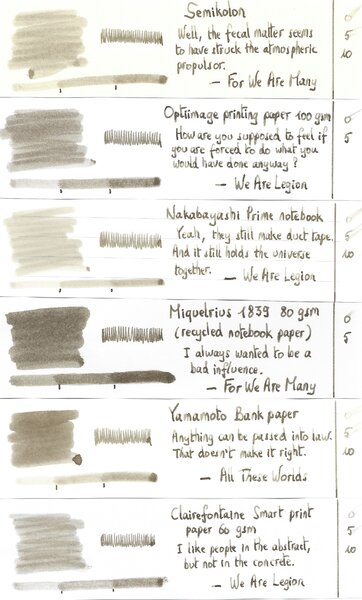 Semikolon
Well, the fecal matter seems
to have struck the atmospheric
propulsor.
— For We Are Many
0
5
10
Optiimage printing paper 100 gsm
How are you supposed to feel if
you are forced to do what you
would have done anyway?
— We Are Legion
0
5
Nakabayashi Prime notebook
Yeah, they still make duct tape.
And it still holds the universe
together. — We Are Legion
0
5
10
Miquelrius 1839 80 gsm
(recycled notebook paper)
I always wanted to be a
bad influence.
— For We Are Many
0
5
Yamamoto Bank paper
Anything can be passed into law.
That doesn't make it right.
— All These Worlds
0
5
10
Clairefontaine Smart print
paper 60 gsm
I like people in the abstract,
but not in the concrete.
— We Are Legion
0
5
10